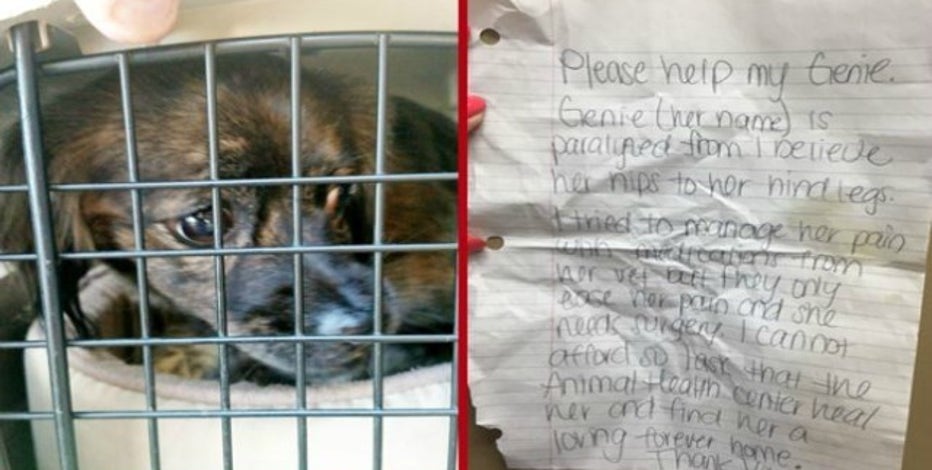 Please help my Genie.
Genie (her name) is
paralized from I believe
her hips to her hind legs.
I tried to manage her pain
with medications from
her vet but they only
ease her pain and she
needs surgery. I cannot
afford so I ask that the
Animal Health Center heal
her and find her a
loving forever home.
Thank